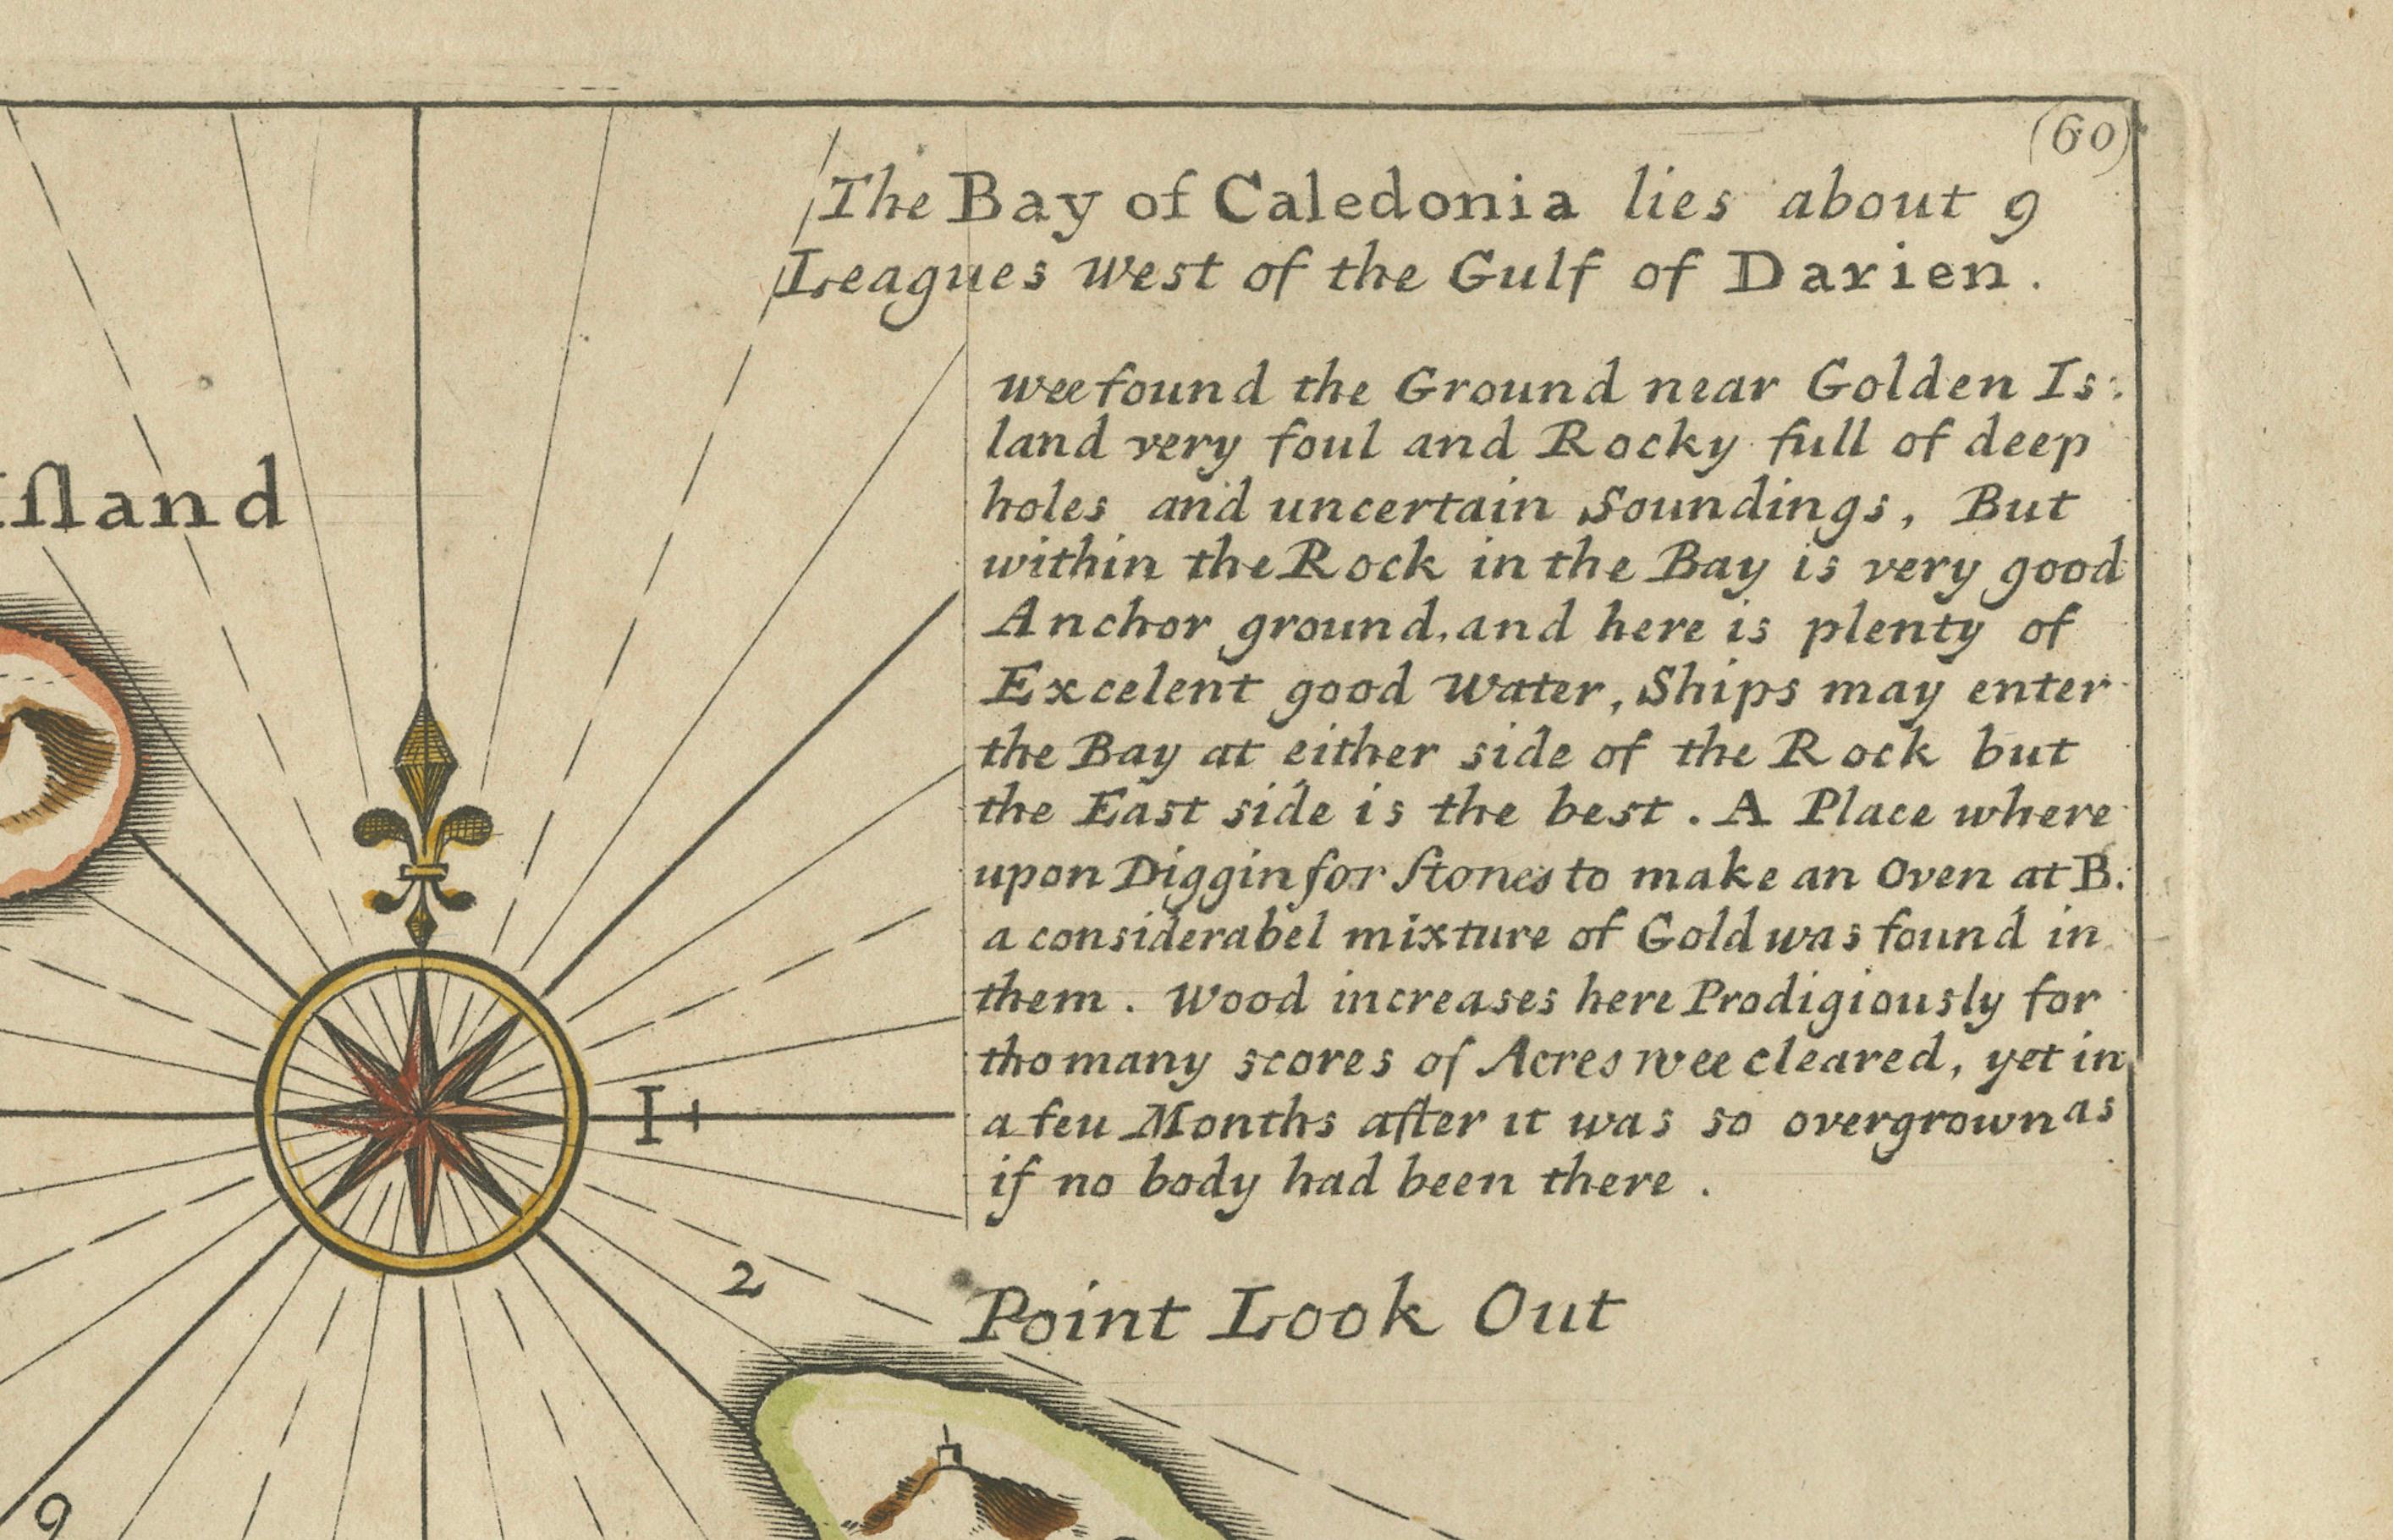 (60)
The Bay of Caledonia lies about 9
Leagues west of the Gulf of Darien.
wee found the Ground near Golden Is:
land very foul and Rocky full of deep
holes and uncertain Soundings, But
within the Rock in the Bay is very good
Anchor ground, and here is plenty of
Excelent good Water, Ships may enter
the Bay at either side of the Rock but
the East side is the best. A Place where
upon Diggin for Stones to make an Oven at B.
a considerabel mixture of Gold was found in
them. Wood increases here Prodigiously for
tho many scores of Acres wee cleared, yet in
a feu Months after it was so overgrown as
if no body had been there.
Iſland
I
2
Point Look Out
9